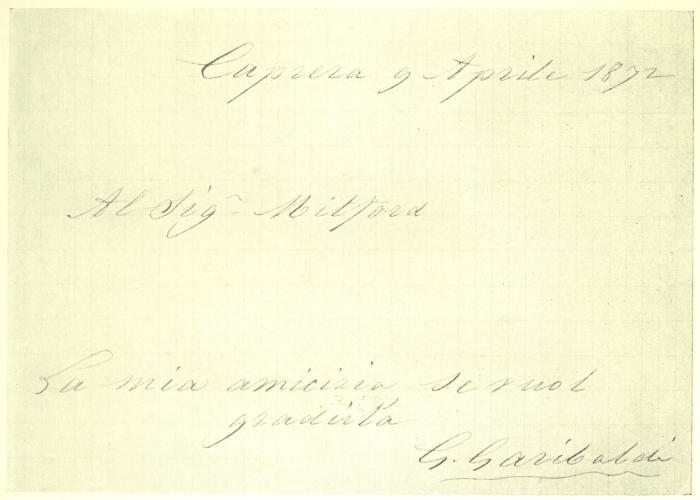 Caprera 9 Aprile 1872
Al Sigr Mitford
La mia amicizia se vuol
gradirla
G. Garibaldi